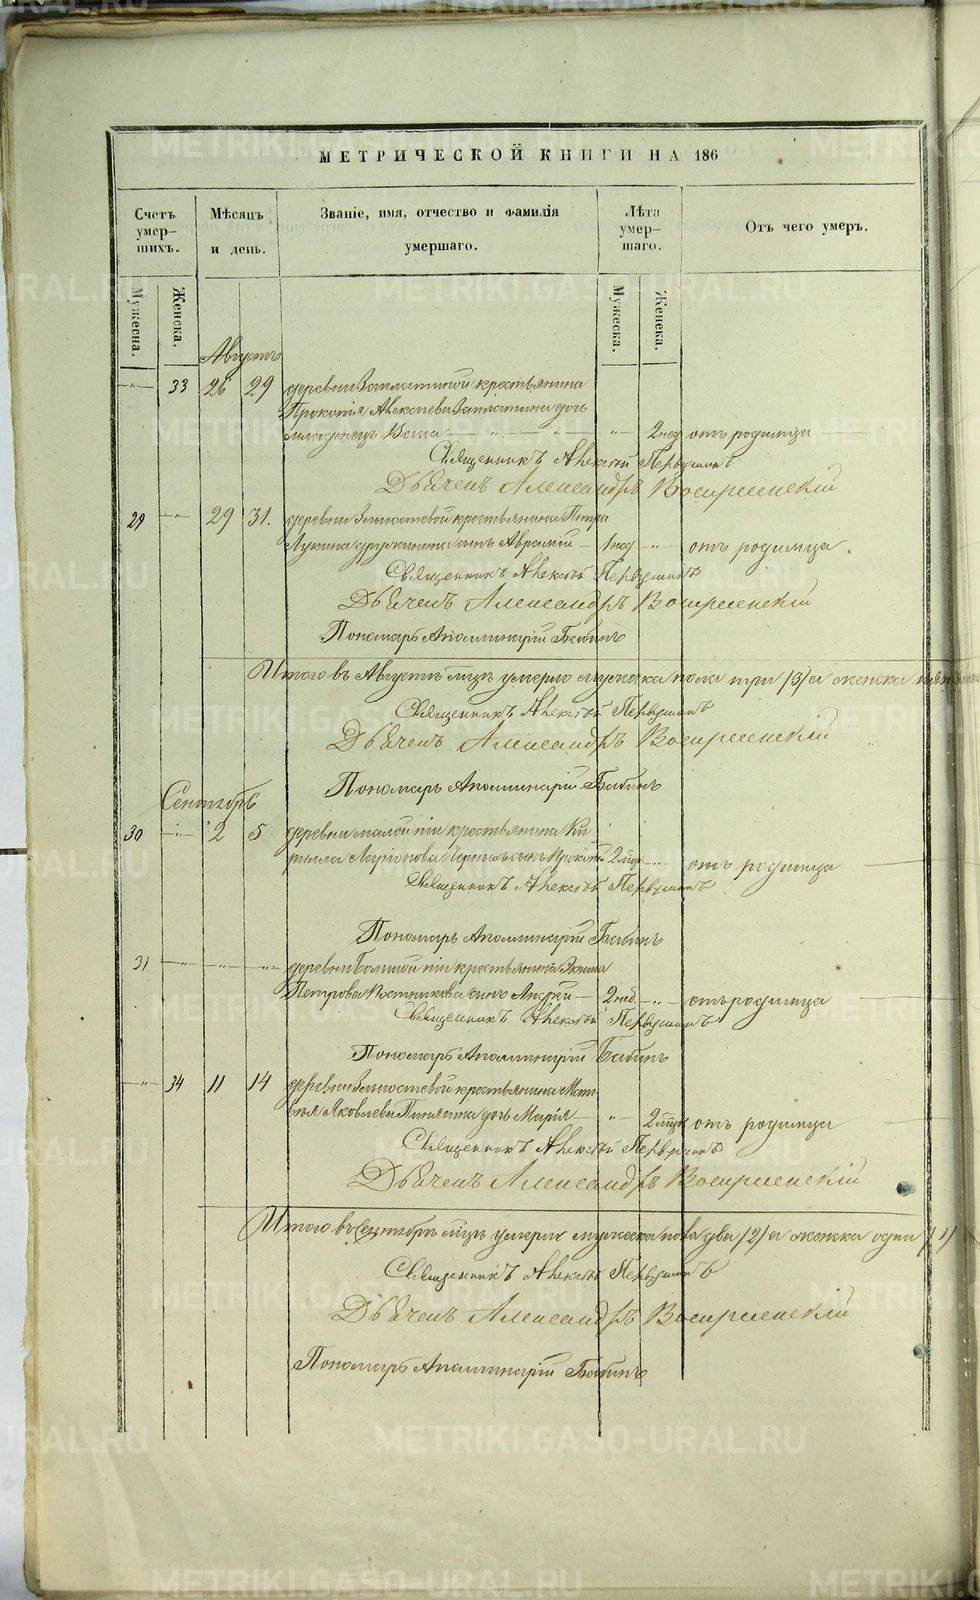 МЕТРИЧЕСКОЙ КНИГИ НА 186
Счетъ умер- шихъ.
Мѣсяцъ и день.
Званіе, имя, отчество и фамилія умершаго.
Лѣта умер- шаго.
Отъ чего умеръ.
Мужеска.
Женска.
Мужеска.
Женска.
Августъ
33 26 29 деревни крестьянина
Прокопія Алексѣева дочь
младенецъ 2 нед отъ родимца
Священникъ Алексѣй Первушинъ
Дьяченъ Александръ Воскресенскій
29 29 31. деревни крестьянина Петра
Лукина сынъ Аврамій 1 год отъ родимца.
Священникъ Алексѣй Первушинъ
Дьяченъ Александръ Воскресенскій
Пономарь Аполлинарій Бабинъ
Итого въ Августѣ мцѣ умерло мужеска пола три /3/ а женска
Священникъ Алексѣй Первушинъ
Дьяченъ Александръ Воскресенскій
Пономарь Аполлинарій Бабинъ
Сентябрь
30 2 5 деревни малой крестьянина Ки
рилла Ларіонова сынъ 2 отъ родимца
Священникъ Алексѣй Первушинъ
Пономарь Аполлинарій Бабинъ
31 деревни Большой крестьянина
Петрова Постникова сынъ Андрей 2 нед. отъ родимца
Священникъ Алексѣй Первушинъ
Пономарь Аполлинарій Бабинъ
34 11 14 деревни крестьянина Мат
вѣя Яковлева дочь Марія 2 отъ родимца
Священникъ Алексѣй Первушинъ
Дьяченъ Александръ Воскресенскій
Итого въ Сентябрѣ мцѣ умерло мужеска пола два /2/ а женска одна /1/
Священникъ Алексѣй Первушинъ
Дьяченъ Александръ Воскресенскій
Пономарь Аполлинарій Бабинъ
METRIKI.GASO-URAL.RU